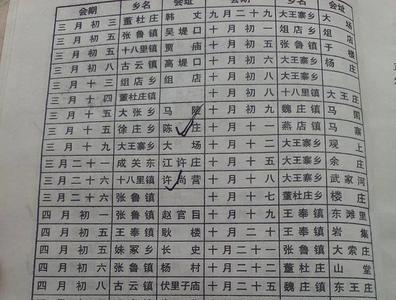 会期 乡名 会址 会期 乡名 会址
三月初三 董杜庄 韩丈 九月二十九 大王寨乡 大场
三月初五 张鲁镇 吴堤口 十月初一 俎店乡 俎店
三月初五 十八里镇 贾庙 十月初五 张鲁镇 于楼
三月初八 古云镇 高堤口 十月初六 大王寨乡 杨庄
三月十三 俎店乡 俎店 十月初八 大王寨乡
三月十四 董杜庄镇 十月初八 十八里镇 大王庄
三月十五 大张乡 马陵 十月初九 魏庄镇 马固
三月十五 徐庄乡 陈庄 十月十一 燕店镇 马寨
三月十九 大王寨乡 大场 十月十二 大王寨乡 观上
三月二十一 成关东 江许庄 十月十五 大王寨乡 余庄
三月二十六 十八里镇 许尚营 十月十八 大王寨乡 武家河
三月二十六 张鲁镇 十月十七 董杜庄乡 楼庄
四月初一 张鲁镇 赵官目 十月二十 王奉镇 东滩里
四月初五 王奉镇 耿楼 十月二十 王奉镇 岩集
四月初五 妹冢乡 长史 十月二十一 张鲁镇 大索庄
四月初八 张鲁镇 杨村 十月二十二 董杜庄 山堂
四月初八 古云镇 伏里子庙 十月二十二 魏庄镇 东王庄